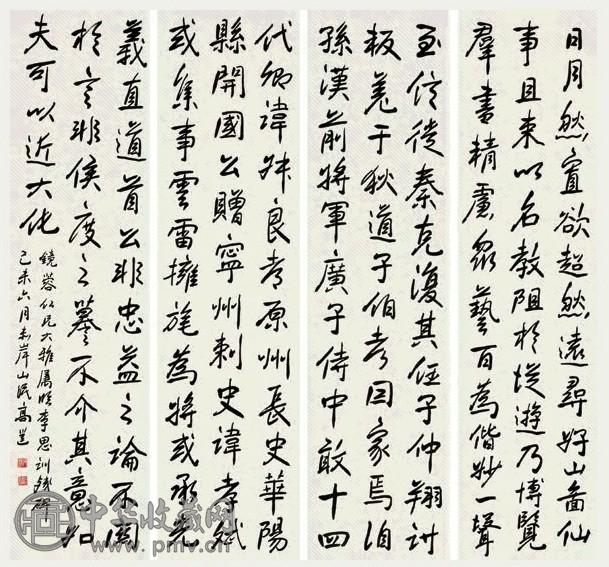 日月然宣欲超然遠尋好山啚仙
事且束以名教阻於從遊乃博覽
羣書精慮眾藝百為偕妙一聲
至信徙秦克復其任子仲翔討
叛羌于狄道子伯考因家焉洎
孫漢前將軍廣子侍中敢十四
代卿諱良考原州長史華陽
縣開國公贈寧州刺史諱孝斌
或集事雲雷擁旄為將或承光
義直道首公非忠益之論不關
於言非侯度之謩不介其意如
夫可以近大化
鏡蓉仁兄大雅屬臨李思訓殘碑
己未六月赤岸山民高邕
中华收藏网
www.pmv.cn